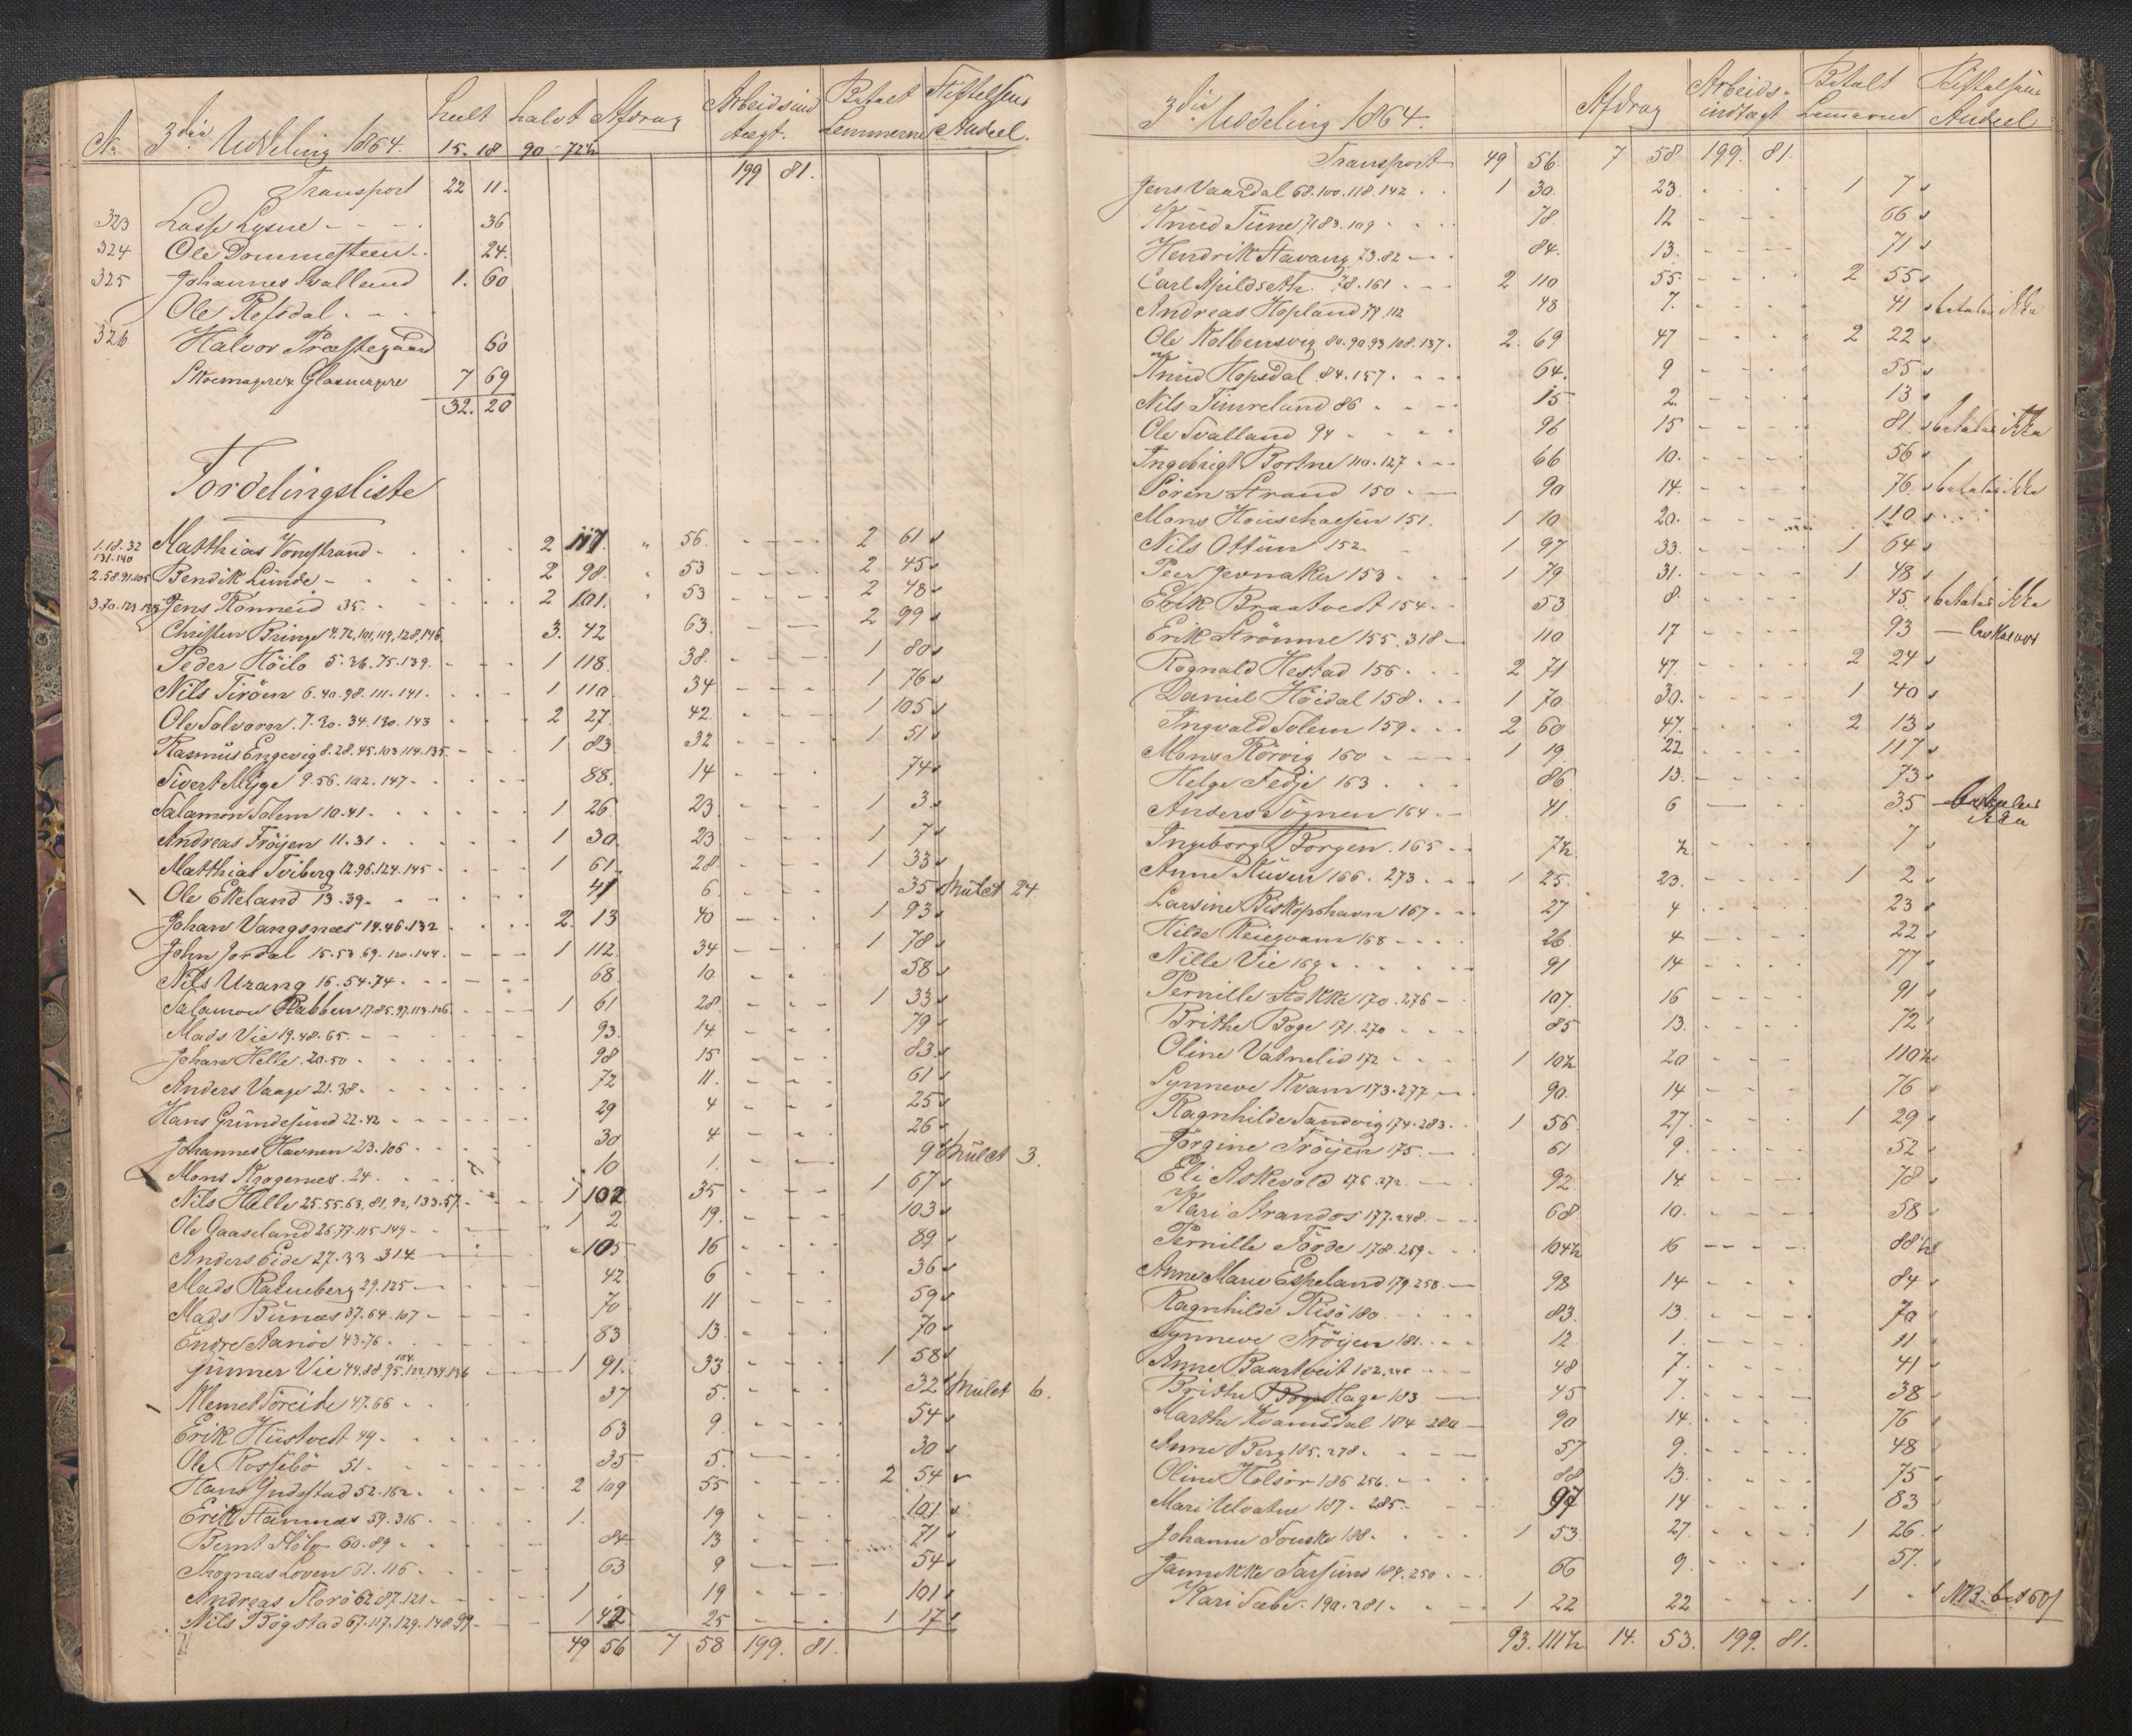 No 3die Uddeling 1864. heelt halvt Afdrag Arbeidsind Betalt Stiftelsens
15.18 90-72½ tægt. Lemmerne Andeel.
Transport 22 11. 199 81.
323 Lasse Lysne - - - . 36
324 Ole Dommesteen . . 24.
325 Johannes Svalland 1. 60
Ole Refsdal . - -
326 Halvor Præstegaard 60
Skoemagere & Glasmagere 7 69
32. 20
Fordelingsliste
1.18.32 131.140 Matthias Vonestrand - 2 117. " 56. 2 61
2.58.91.105 Bendik Lunde - 2 98. " 53 2 45
3.70.123 Jens Rönneid 35. 2 101. " 53 2 48
Christen Bringe 4.72,101,119,128,146 3. 42 63. 2 99
Peder Höilo 5.36.75.139. 1 118. 38. 1 80
Nils Tiröen 6.40.98.111.141. 1 110 34 1 76
Ole Solvorn. 7.30.34.130.143 2 27. 42. 1 105
Rasmus Engevig 8.28.45.103.114.135. 1 83 32 1 51
Sivert Myge 9.56.102.147 88. 14 74
Salamon Solem 10.41. 1 26. 23. 1 3
Andreas Fröyen 11.31 1 30. 23 1 7
Matthias Tviberg 12.96.124.145 1 61 28 1 33
Ole Ekeland 13.39. 41 6. 35 Mulct 24
Johan Vangsnæs 14.46.132 2. 13 40 1 93
John Jordal 15.53.69.120.144. 1 112. 34 1 78
Nils Urang 16.54.74. 68. 10 58
Salamon Rabben 17.85.97.113.126. 1 61 28. 1 33
Mads Vie 19.48.65. 93. 14. 79
Johan Helle. 20.50 98 15 83
Anders Vaage 21.38. 72 11. 61
Hans Grundesund 22.42 29 4 25
Johannes Havnen 23.106 30 4 26
Mons Krogenes. 24. 10 1. 9 Mulct 3.
Nils Hælle 25.55.63,81,92,133.57. 1 102 35 1 67
Ole Gaaseland 26.77.115.149 1 2 19. 103
Anders Eide 27.33 314 105 16 89
Mads Ratneberg 29.125 42 6 36
Mads Bunæs 37.64.107 70 11 59
Endre Aarnöe 43.76 83 13. 70
Gunner Vie 44.88,95.104.122,134.136 1 91. 33 1 58
Memet Töreide 47.66 37 5. 32 Mulct 6.
Erik Hustvedt 49. 63 9. 54
Ole Rossebö 51. 35 5. 30
Hans Yndestad 52.162. 2 109 55 2 54
Erik Stennæs 59.316 1. 19 101
Bernt Hölo 60.89 84 13 71
Thognas Loven 61.116 63 9 54
Andreas Florö 62.87.121 1 . 19 101
Nils Bögstad 67.117.129.148.99 1 42 25 1 17
49 56 7 58 199. 81.
3die Uddeling 1864. Afdrag Arbeids- Betalt Stiftelsens
indtægt Lemmerne Andeel
Transport 49 56 7 58 199. 81.
Jens Vaardal 68.100.118.142 1 30. 23. 1 7
Knud Tune 71.83.109 78. 12 66
Hendrik Stavang 73.82 84. 13. 71
Carl Apildseth. 78.161 2 110 55. 2 55
Andreas Hopland 79.112 48 7. 41 betales ikke
Ole Kolbensvig 80.90.93.108.137. 2. 69 47 2 22
Knud Hopsdal 84.157. 64. 9 55
Nils Timreland 86 15 2. 13
Ole Svalland 94 96 15 81 betales ikke
Ingebrigt Bortne 110.127 66 10. 56
Sören Strand 150 90 14. 76 betales ikke
Mons Houschaesen 151. 1 10 20. 110
Nils Ottum 152 1 97 33. 1 64
Peer Jevnaker 153 1 79 31. 1 48
Erik Braatvedt 154. 53 8. 45 betales ikke
Erik Strömme 155.318 110 17 93
Rognald Hestad 156 2 71 47. 2 24
Daniel Höidal 158 1 70. 30. 1 40
Ingvald Solem 159. 2 60 47. 2 13
Mons Rörvig 160 1 19. 22 117
Helge Fedje 163 86. 13. 73
Anders Sögnen 164 41. 6 35 betales ikke
Ingeborg Borgen. 165 7½. ½ 7
Anne Stuven 166.273. 1 25. 23. 1 2
Larsine Biskopshavn 167. 27 4 23
Hilde Reiegvam 168 26 4 22
Nille Vie 169. 91 14 77
Pernille Stokke 170.276 107. 16 91
Brithe Boge 171.270 85 13. 72
Oline Vatnelid 172 1 10½ 20 110½
Synneve Kvam 173.277 90. 14 76
Ragnhilde Sandvig 174.283. 1 56. 27. 1 29
Jörgine Fröyen 175. 61 9. 52
Eli Askevold 176.272. 92. 14. 78
Kari Strandos 177.248. 68 10. 58
Pernille Förde 178.259. 104½ 16 88½
Anne Marie Espeland 179.258. 98 14 84
Ragnhilde Risö 180 83. 13. 70
Synneve Fröyen 181. 12 1. 11
Anne Baartveit 182. 48 7. 41
Brithe Hage 183 45 7. 38
Marthe Kvamsdal 184 90 14. 76
Anne Berg 185.278. 57 9. 48
Oline Holsör 186 256. 88 13. 75
Mari Ulvatne 187. 285. 97 14 83
Johanne Fonske 188. 1 53 27. 1 26.
Jannekke Sarsund 189.250 66 9. 57.
Kari Sæbö. 190.281. 1 22 22 1 . NB. bet 60
93. 111½ 14. 53. 199. 81.